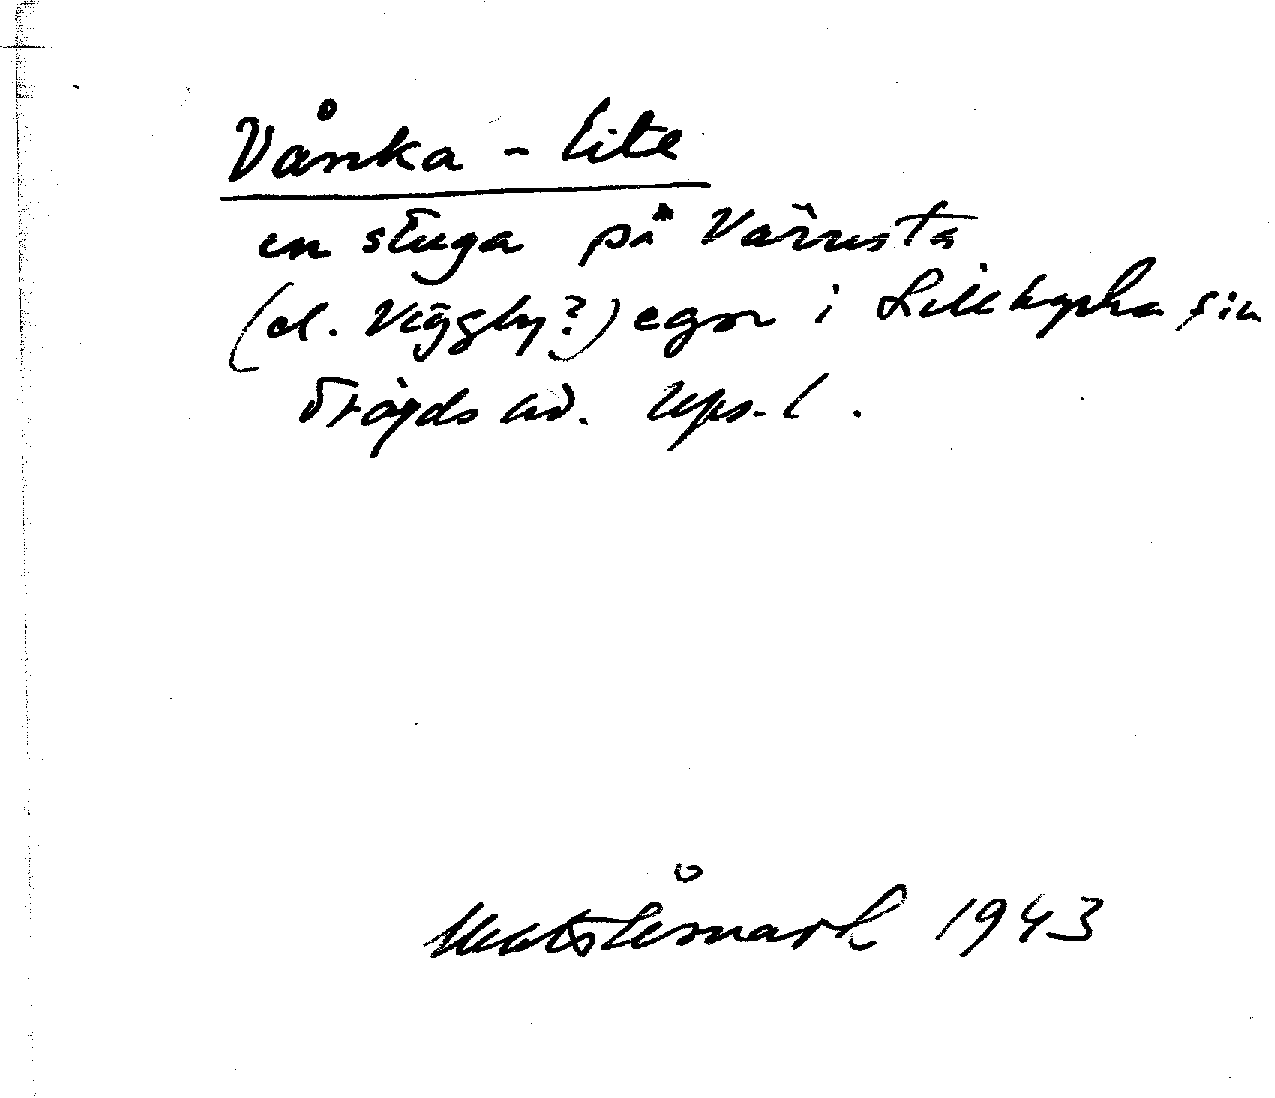 Vånka - Lite
en stuga på Värnsta
(el. Viggby?) egor i Lillkyrka sn
Tröjds hd. Ups. l.
Mats Åmark 1943